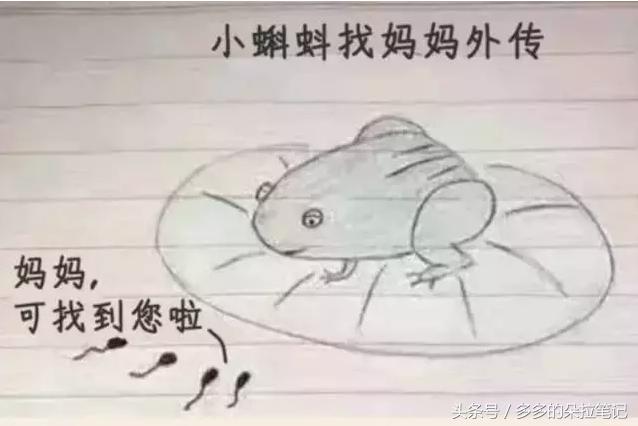 小蝌蚪找妈妈外传
妈妈，
可找到您啦
头条号 / 多多的朵拉笔记